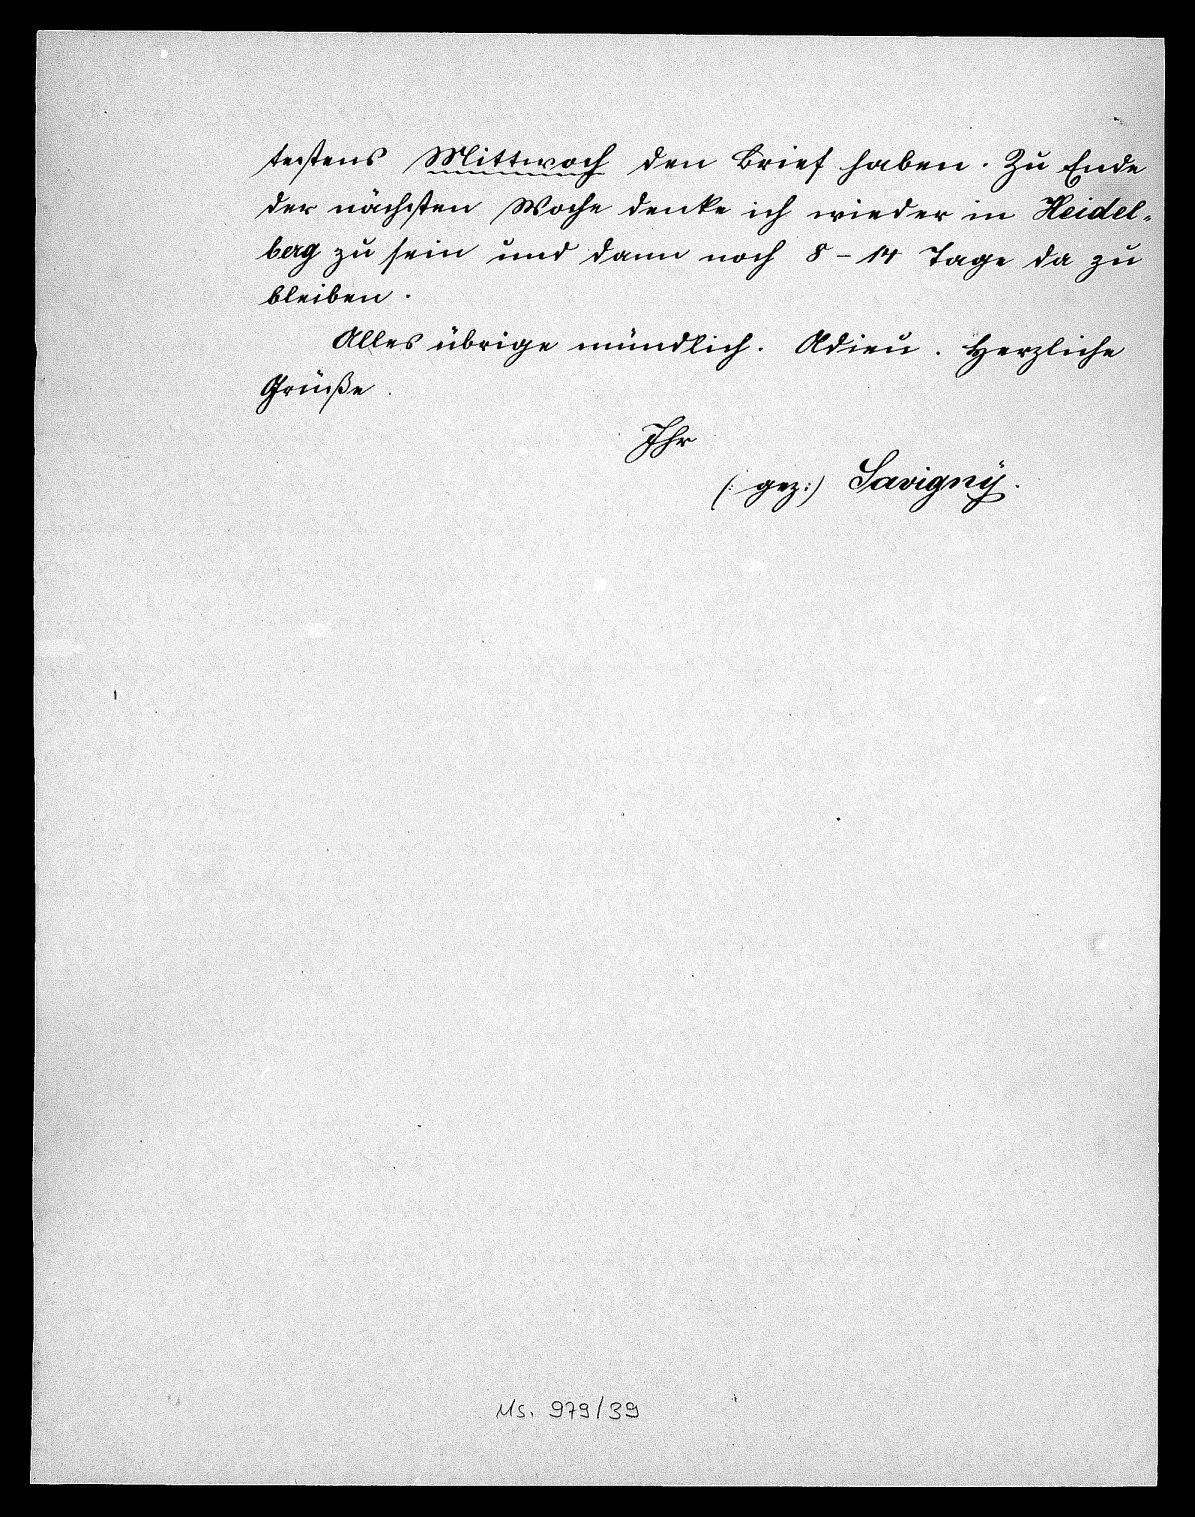 testens Mittwoch den Brief haben. Zu Ende
der nächsten Woche denke ich wieder in Heidel-
berg zu sein und dann noch 8 - 14 Tage da zu
bleiben.
Alles übrige mündlich. Adieu. Herzliche
Grüße.
Ihr
(: gez:) Savigny.
Ms. 979/39